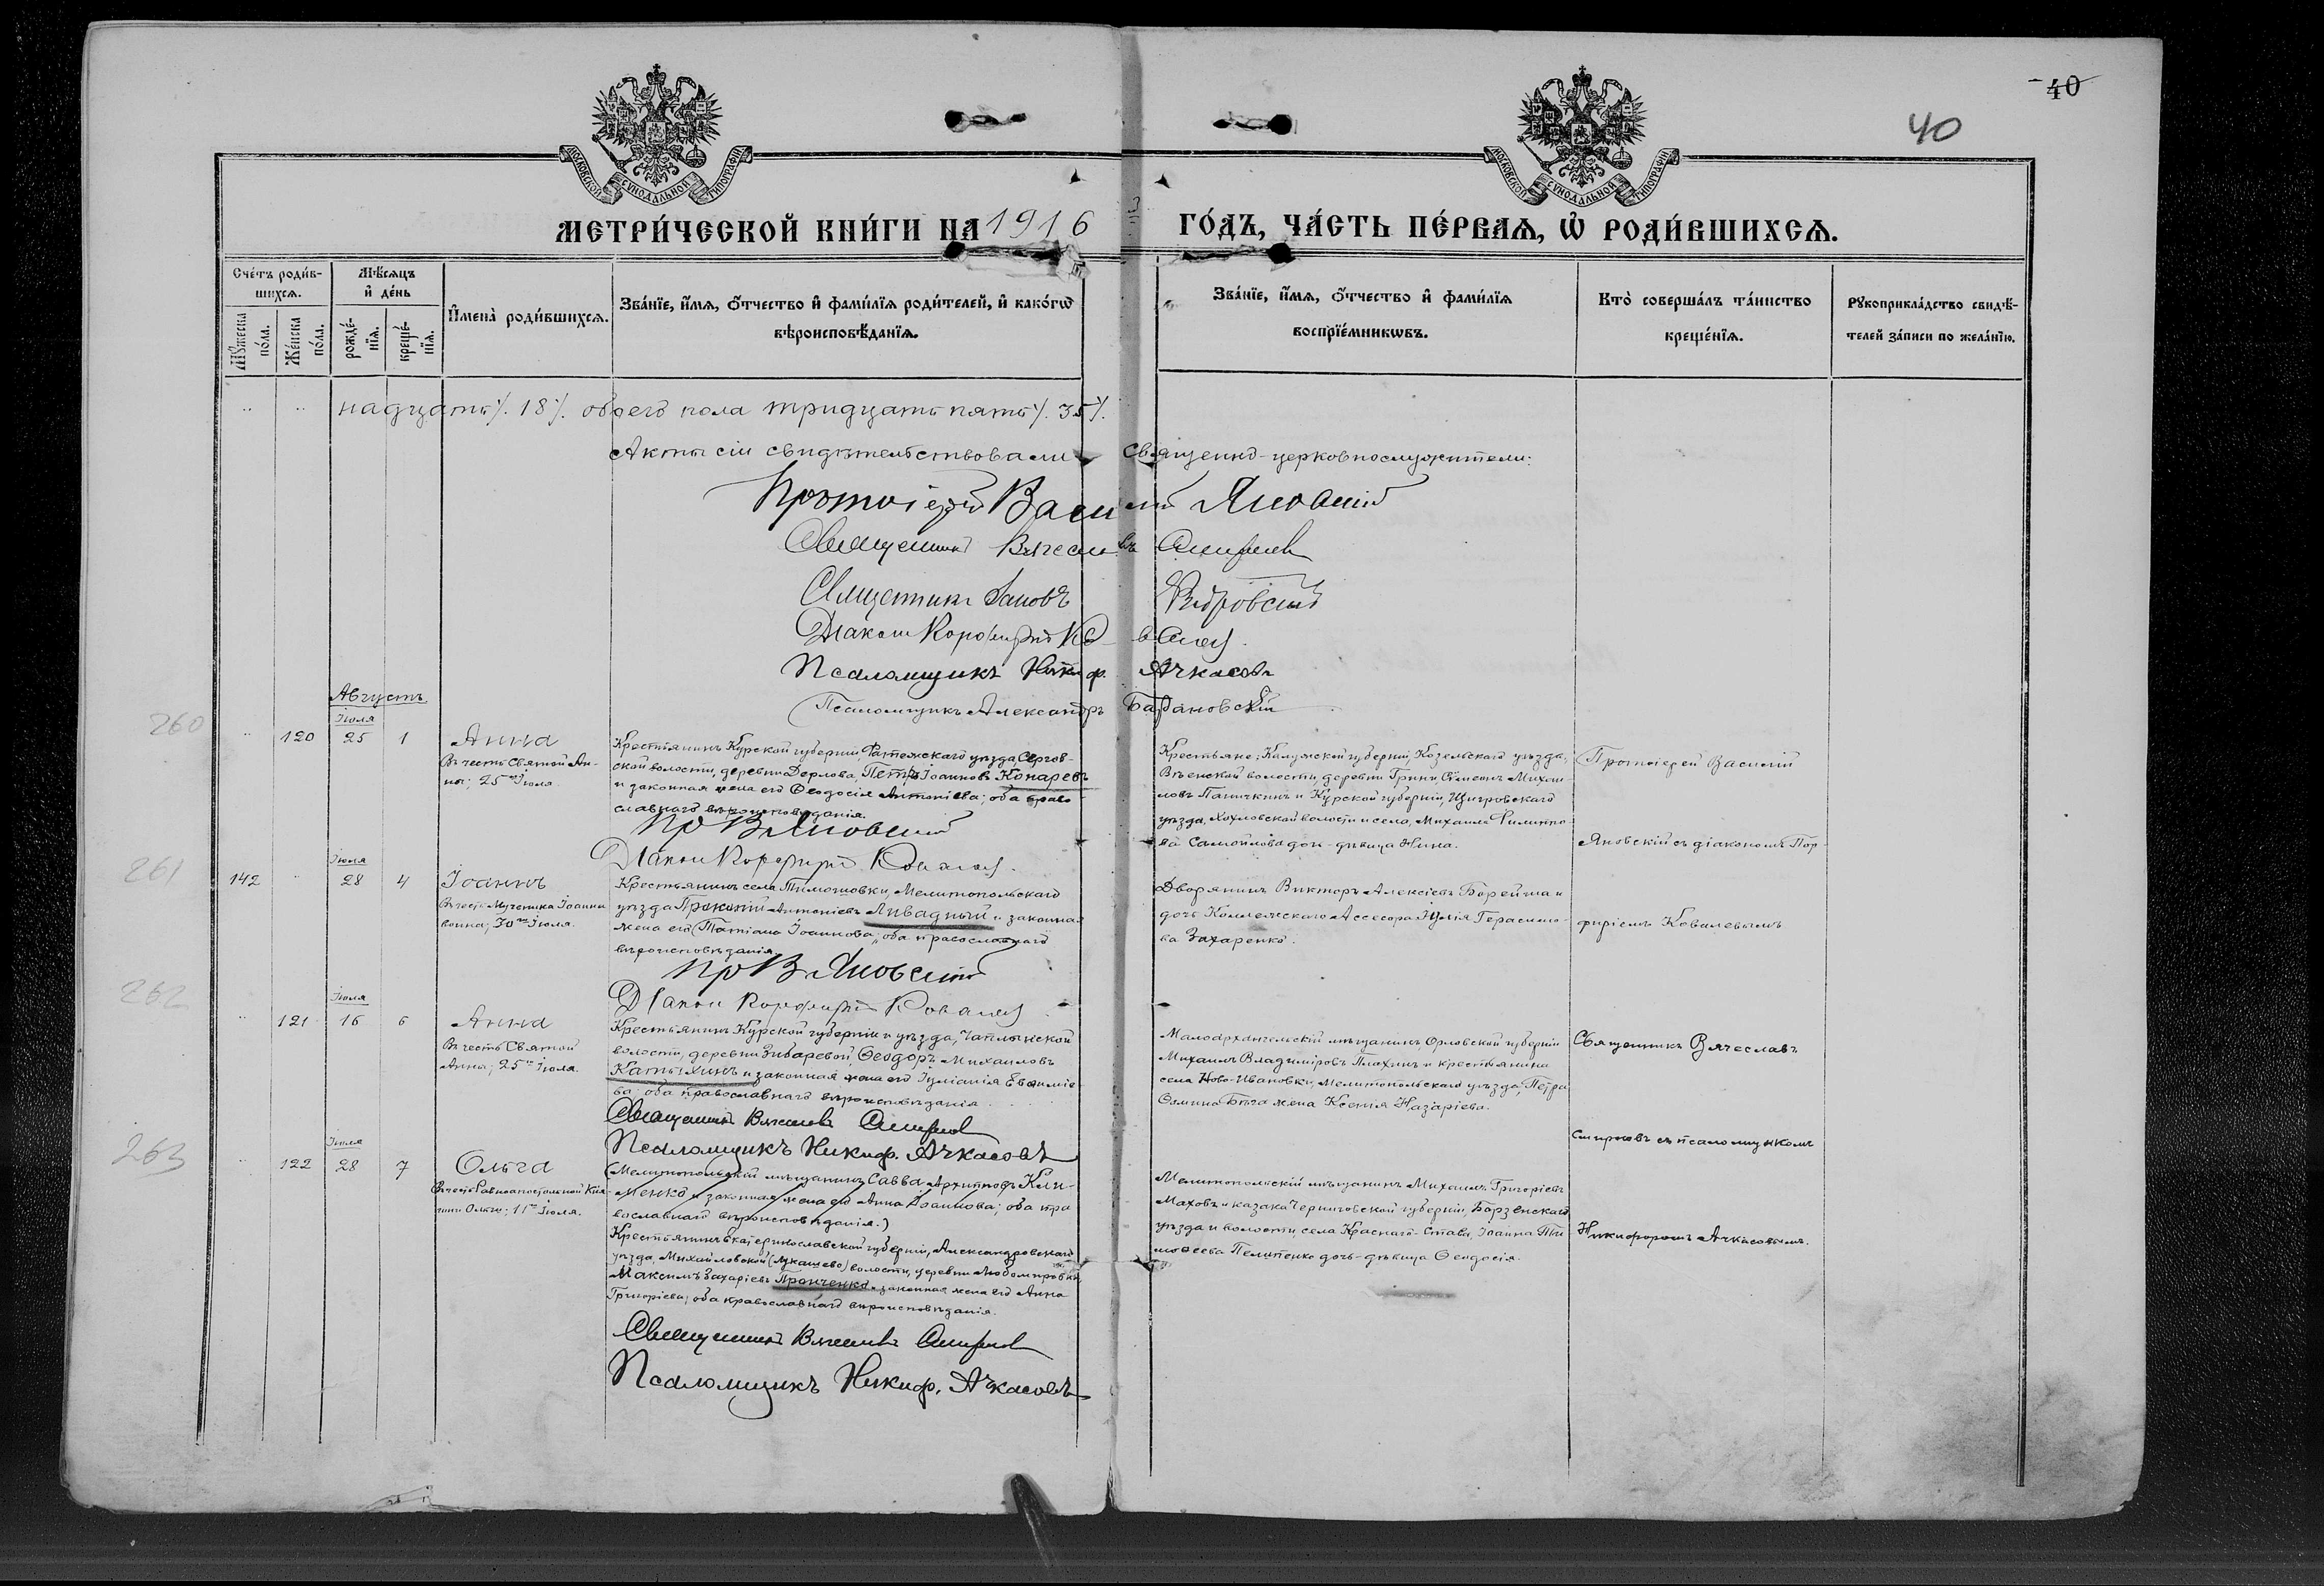 40
40
МОСКОВСКОЙ СѴНОДАЛЬНОЙ ТИПОГРАФІИ
МОСКОВСКОЙ СѴНОДАЛЬНОЙ ТИПОГРАФІИ
МЕТРИ́ЧЕСКОЙ КНИ́ГИ НА 1916 ГО́ДЪ, ЧА́СТЬ ПЕ́РВАѦ, Ѡ҆ РОДИ́ВШИХСѦ.
Сче́тъ роди́в-
шихсѧ.
Мꙋ́жеска по́ла.
Же́нска по́ла.
Мѣ́сѧцъ
и҆ де́нь
рожде́-
нїѧ.
креще́-
нїѧ.
И҆мена̀ роди́вшихсѧ.
Зва́нїе, и҆́мѧ, ѻ҆́тчество и҆ фами́лїѧ роди́телей, и҆ како́гѡ
вѣроисповѣ́данїѧ.
Зва́нїе, и҆́мѧ, ѻ҆́тчество и҆ фами́лїѧ
воспрїе́мникѡвъ.
Кто̀ соверша́лъ та́инство
креще́нїѧ.
Рꙋкоприкла́дство свидѣ́-
телей за́писи по жела́нїю.
надцать /. 18 /. обоего пола тридцать пять /. 35 /.
Акты сіи свидѣтельствовали священно-церковнослужители:
Протоіерей Василій Яновскій
Священникъ Вячеславъ Смирнов
Священникъ Іаковъ
Діакон Порфирій Ковалев
Псаломщикъ Никиф. Ачкасовъ
Псаломщикъ Александръ Барановскій
Августъ
260
120
Іюля
25
1
Анна
Въ честь Святой Ан-
ны; 25го Іюля.
Крестьянинъ Курской губерніи, Фатежскаго уѣзда, Сергов-
ской волости, деревни Дерлова, Петръ Іоанновъ Конаревъ
и законная жена его Ѳеодосія Антоніева; оба право-
славнаго вѣроисповѣданія.
Пр В Яновскій
Діакон Порфирій Ковалев.
Крестьяне: Калужской губерніи, Козельскаго уѣзда,
волости, деревни Симеонъ Михаи-
ловъ Паничкинъ и Курской губерніи, Щигровскаго
уѣзда, Хохловской волости и села, Михаила Филиппо-
ва Самойлова дочь-дѣвица Нина.
Протоіерей Василій
Яновскій съ діакономъ Пор-
261
142
Іюля
28
4
Іоаннъ
Въ честь Мученика Іоанна
воина; 30го Іюля.
Крестьянинъ села Тимошовки, Мелитопольскаго
уѣзда Прокопій Антоніевъ Ливадный и законная
жена его Татіана Іоаннова; оба православнаго
вѣроисповѣданія.
Пр В Яновскій
Діакон Порфирій Ковалев
Дворянинъ Викторъ Алексіевъ Борейша и
дочь Коллежскаго Ассесора Юлія Герасимо-
ва Захаренко.
фиріемъ Ковалевымъ
262
121
Іюля
16
6
Анна
Въ честь Святой
Анны; 25го Іюля.
Крестьянинъ Курской губерніи и уѣзда, Чаплынской
волости, деревни Зибаревой, Ѳеодоръ Михаиловъ
Катыхинъ и законная жена его Іуліанія Евѳиміе-
ва; оба православнаго вѣроисповѣданія.
Священникъ Вячеславъ Смирнов
Псаломщикъ Никиф. Ачкасовъ
Малоархангельскій мѣщанинъ Орловской губерніи
Михаилъ Владиміровъ Плохихъ и крестьянина
села Ново-Ивановки, Мелитопольскаго уѣзда, Петра
Ѳомина Бѣга жена Ксенія Назаріева.
Священникъ Вячеславъ
Смирновъ съ псаломщикомъ
263
122
Іюля
28
7
Ольга
Въ честь Равноапостольной Кня-
гини Ольги; 11го Іюля.
(Мелитопольскій мѣщанинъ Савва Архиповъ Кли-
менко и законная жена его Анна Іоаннова; оба пра-
вославнаго вѣроисповѣданія.)
Крестьянинъ Екатеринославской губерніи, Александровскаго
уѣзда, Михайловской (Лукашево) волости, деревни Любомировки
Максимъ Захаріевъ Пронченко и законная жена его Анна
Григоріева; оба православнаго вѣроисповѣданія.
Священникъ Вячеславъ Смирнов
Псаломщикъ Никиф. Ачкасовъ
Мелитопольскій мѣщанинъ Михаилъ Григоріевъ
Маховъ и казака Черниговской губерніи, Борзенскаго
уѣзда и волости, села Краснаго-Става, Іоанна Ти-
моѳеева Пелипенко дочь-дѣвица Ѳеодосія.
Никифоромъ Ачкасовымъ.